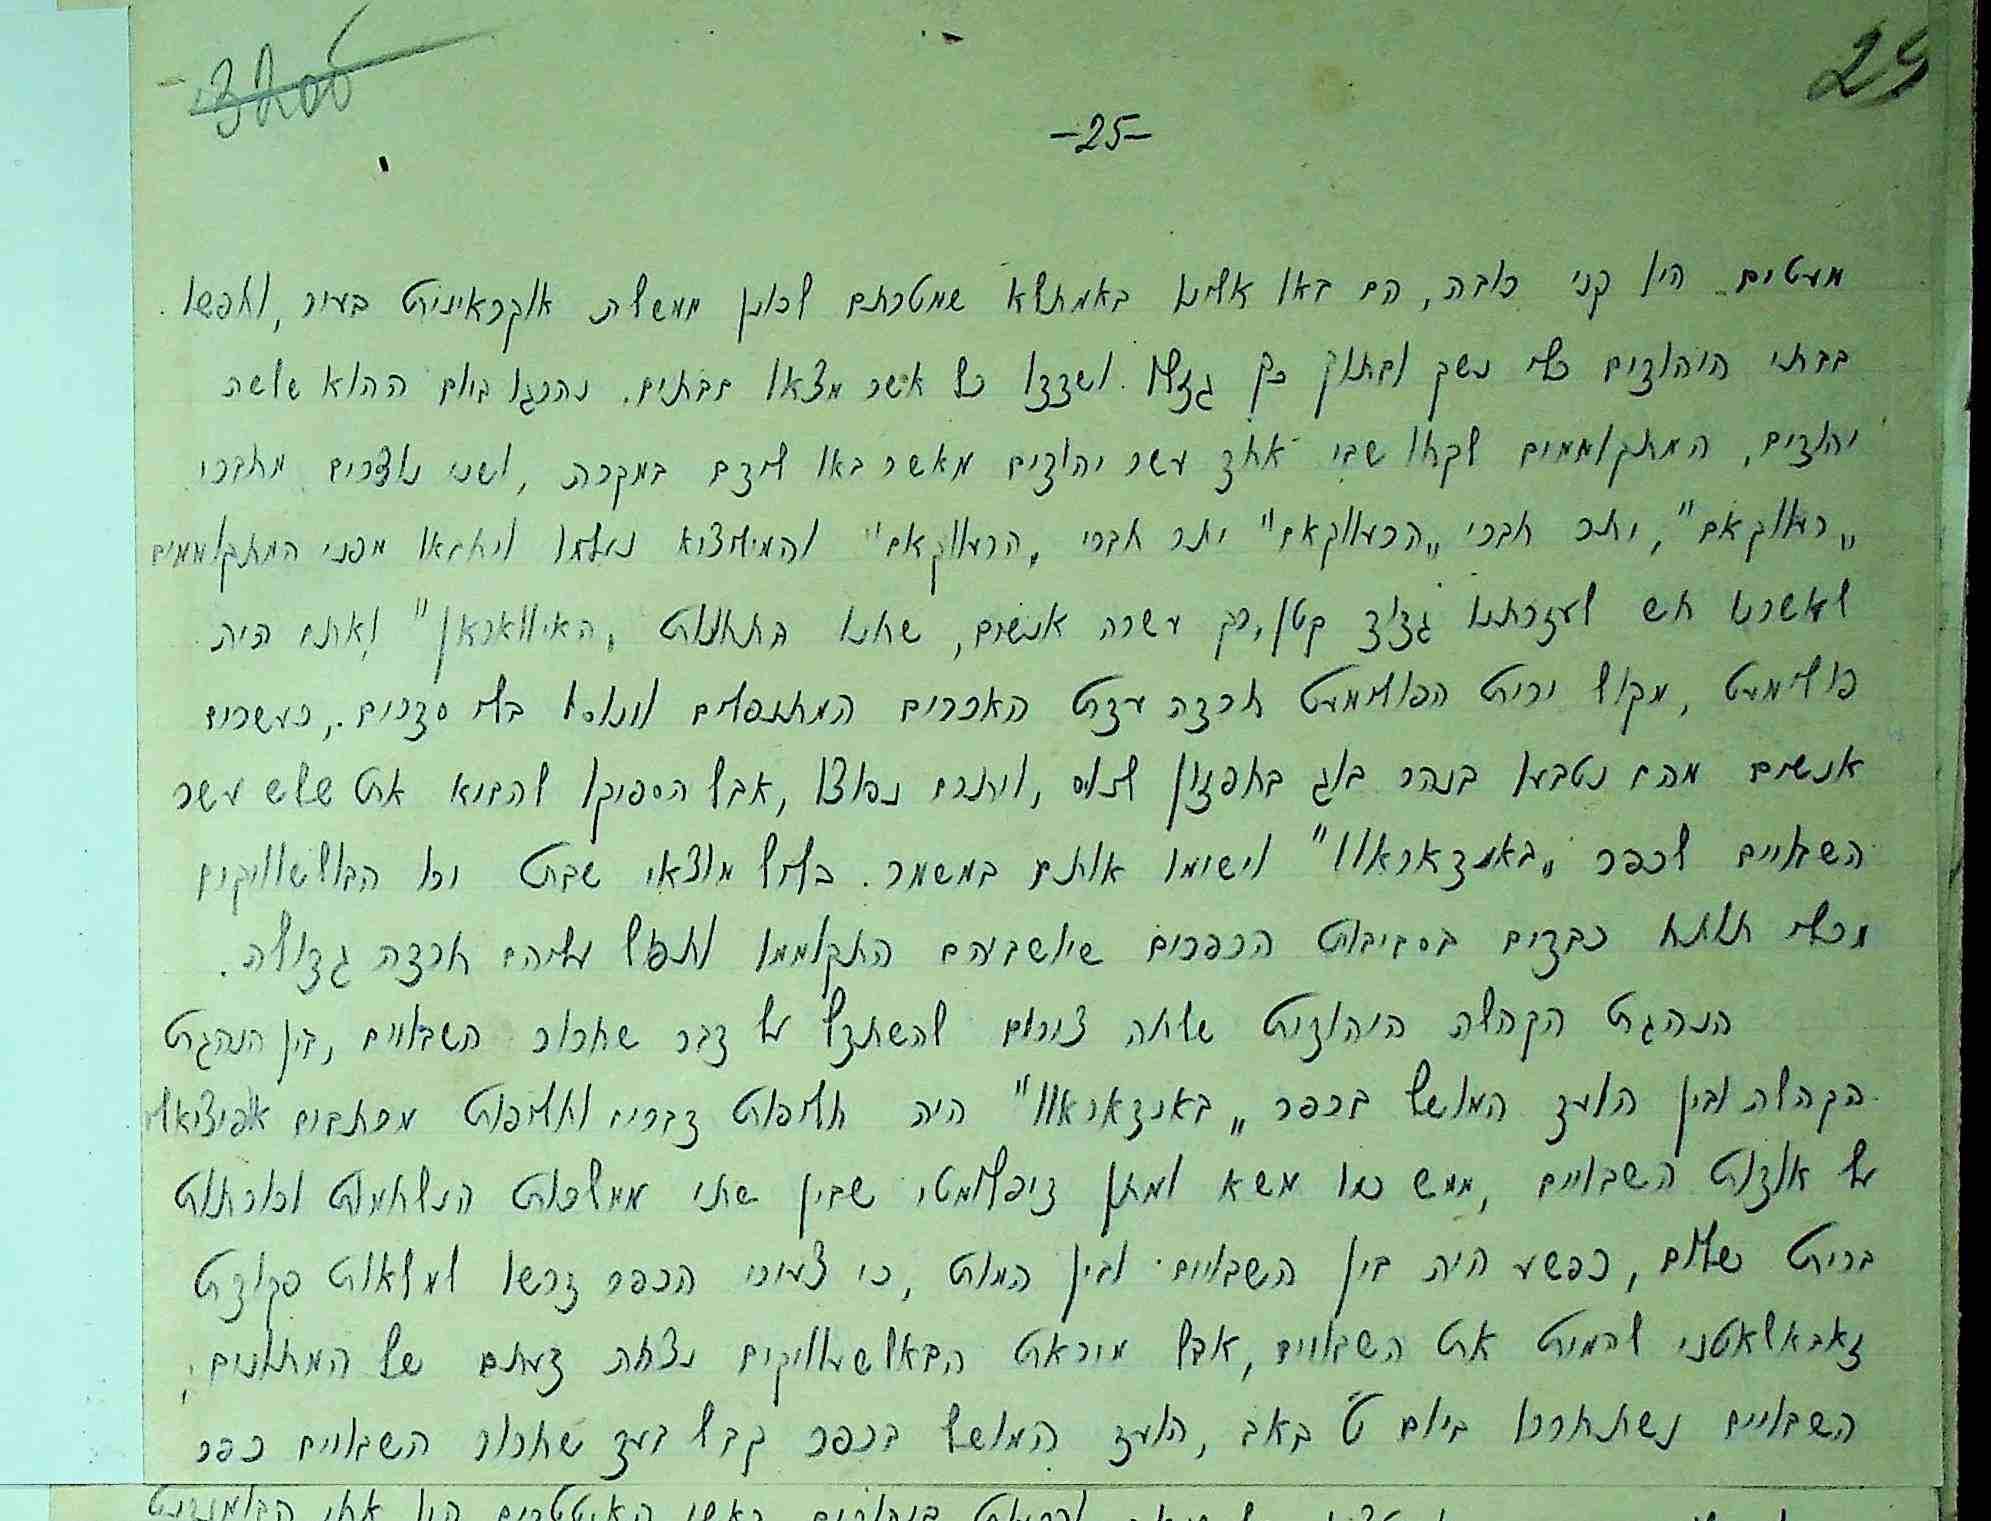 320б
25
-25-
מעטים היו קני רובה, הם באו אלינו באמתלא שמטרתם לכונן ממשלת אוקראינית בעיר, וחפשו
בבתי היהודים כלי נשק ובתוך כך גזלו ושדדו כל אשר מצאו בבתים. נהרגו ביום ההוא שלשה
יהודים, המתקוממים לקחו שבי אחד עשר יהודים מאשר באו לידם במקרה, ושני נוצרים מחברי
„רעווקאם", יתר חברי „הרעווקאם" יתר חברי „הרעווקאם" והמיליציא נעלמו ויחבאו מפני המתקוממים
לאשרנו חש לעזרתנו גדוד קטן, רק עשרה אנשים, שחנו בתחנות „האיוואראן" ואתם היה
פולימעט, מקול יריות הפולימעט חרדה עדת האכרים המתנפלים וינוסו בלי סדרים, כעשרים
אנשים מהם נטבעו בנהר בוג בחפזון לנוס, ויתרם נפוצו, אבל הספיקו להביא את שלש עשר
השבויים לכפר „באנדאראוו" וישימו אותם במשמר. בליל מוצאי שבת ירו הבולשוויקים
מכלי תותח כבדים בסביבות הכפרים שיושביהם התקוממו ותפול עליהם חרדה גדולה.
הנהגת הקהלה היהודית שלחה צירים להשתדל על דבר שחרור השבויים, בין הנהגת
הקהלה ובין הועד המושל בכפר „באנדאראוו" היה חליפות דברים וחליפות מכתבים אפיציאלי
על אודות השבויים, ממש כמו משא ומתן דיפלומטי שבין שתי ממלכות הנלחמות וכורתות
ברית שלום, כפשע היה בין השבויים ובין המות, כי צעירי הכפר דרשו למלאות פקודת
זאבאלאטני להמית את השבויים, אבל מוראת הבאלשעוויקים נצחה דעתם של המתונים;
השבויים נשתחררו ביום ט' באב, הועד המושל בכפר קבל בעד שחרור השבויים כפר